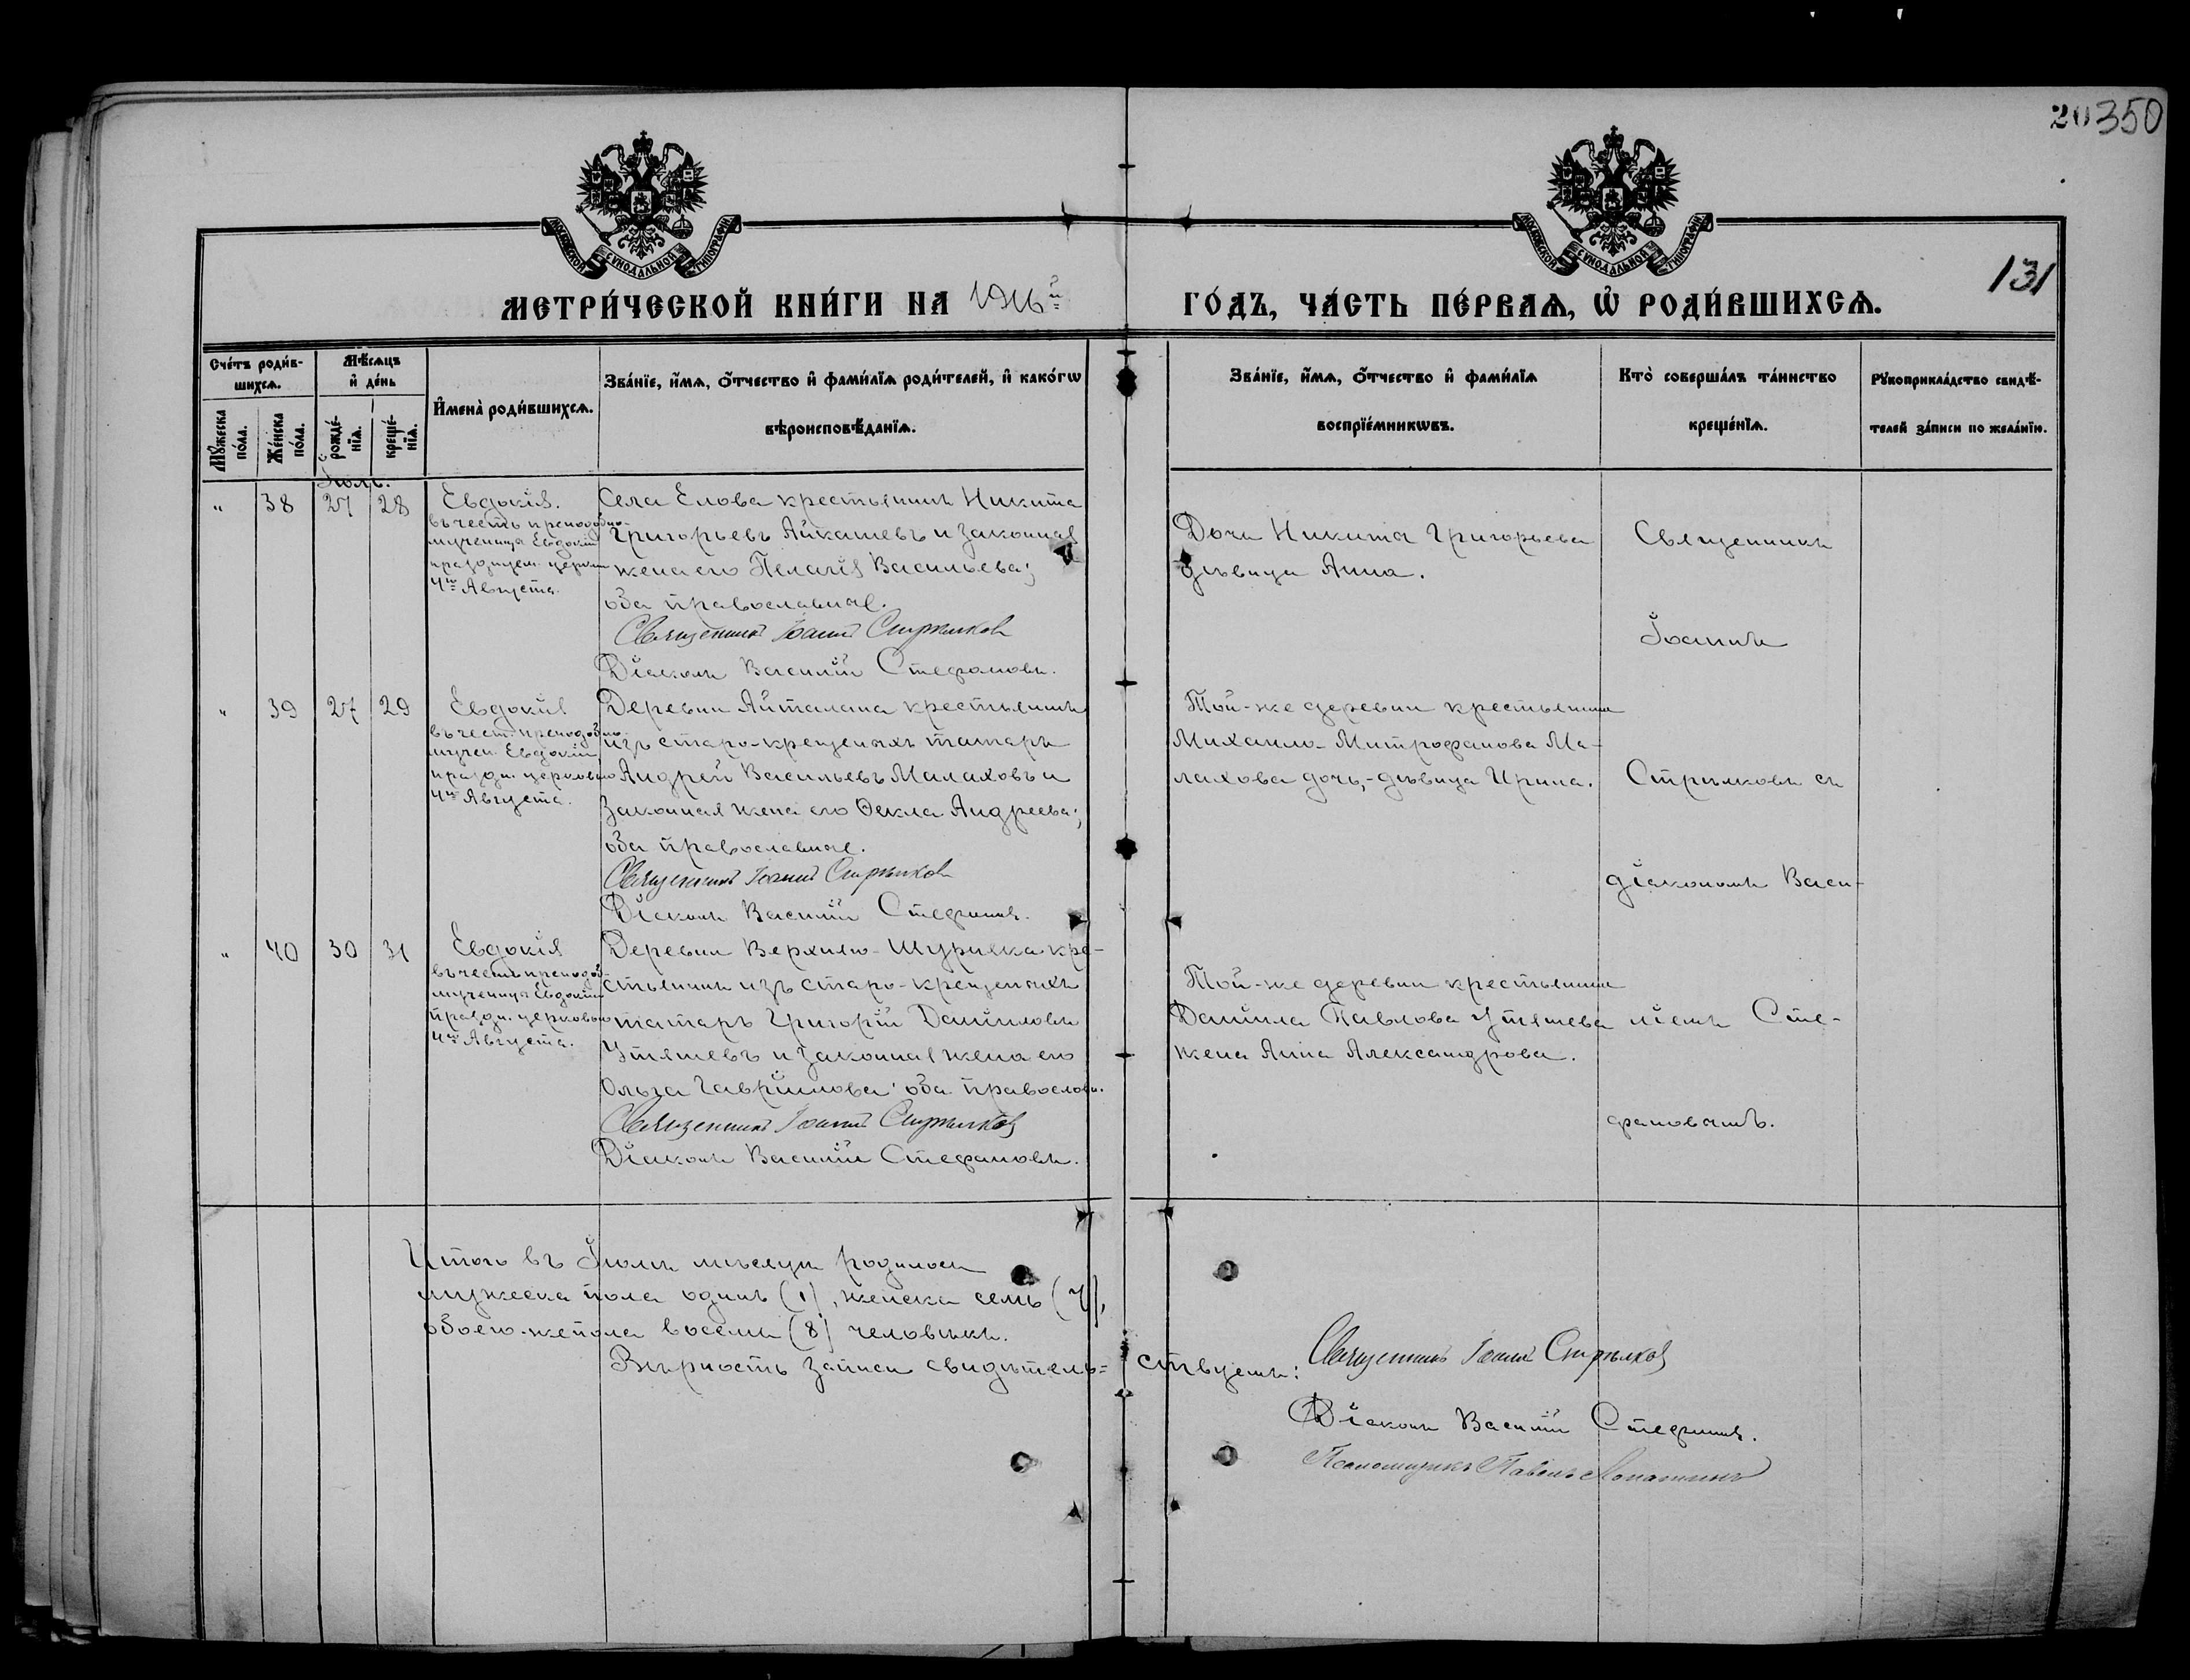 20 350
131
МОСКОВСКОЙ СѴНОДАЛЬНОЙ ТИПОГРАФІИ
МОСКОВСКОЙ СѴНОДАЛЬНОЙ ТИПОГРАФІИ
МЕТРИ́ЧЕСКОЙ КНИ́ГИ НА 1916й ГО́ДЪ, ЧА́СТЬ ПЕ́РВАѦ, Ѡ҆ РОДИ́ВШИХСѦ.
Сче́тъ роди́в-
шихсѧ.
Мꙋ́жеска по́ла.
Же́нска по́ла.
Мѣ́сѧцъ
и҆ де́нь
рожде́-
нїѧ.
креще́-
нїѧ.
И҆мена̀ роди́вшихсѧ.
Зва́нїе, и҆́мѧ, ѻ҆́тчество и҆ фами́лїѧ роди́телей, и҆ како́гѡ
вѣроисповѣ́данїѧ.
Зва́нїе, и҆́мѧ, ѻ҆́тчество и҆ фами́лїѧ
воспрїе́мникѡвъ.
Кто̀ соверша́лъ та́инство
креще́нїѧ.
Рꙋкоприкла́дство свидѣ́-
телей за́писи по жела́нїю.
Іюль.
„ 38 27 28
Евдокія.
въ честь преподобно-
мученицы Евдокіи
празднуем. церков
4го Августа.
Села Елова крестьянинъ Никита
Григорьевъ Айкашевъ и законная
жена его Пелагія Васильева;
оба православные.
Священникъ Іоаннъ Стрѣлковъ
Діаконъ Василій Стефановъ.
Дочь Никита Григорьева
дѣвица Анна.
Священникъ
Іоаннъ
„ 39 27 29
Евдокія
въ чест. преподобно-
мучен. Евдокіи,
праздн. церковью
4го Августа.
Деревни Айталана крестьянинъ
изъ старо-крещеныхъ татаръ
Андрей Васильевъ Малаховъ и
законная жена его Ѳекла Андреева;
оба православные.
Священникъ Іоаннъ Стрѣлковъ
Діаконъ Василій Стефановъ.
Той-же деревни крестьянина
Михаила Митрофанова Ма-
лахова дочь,-дѣвица Ирина.
Стрѣлковъ съ
діакономъ Васи-
„ 40 30 31
Евдокія
въ честь преподоб-
мученицы Евдокіи
праздн. церковью
4го Августа.
Деревни Верхнио-Шурияка кре-
стьянинъ изъ старо-крещеныхъ
татаръ Григорій Даниловъ
Утяшевъ и законная жена его
Ольга Гавріилова; оба православн.
Священникъ Іоаннъ Стрѣлковъ
Діаконъ Василій Стефановъ.
Той-же деревни крестьянина
Даніила Павлова Утяшева
жена Анна Александрова.
ліемъ Сте-
фановымъ.
Итого въ Іюлѣ мѣсяцѣ родилось
мужеска пола одинъ (1), женска семь (7),
обоего-же пола восемь (8) человѣкъ.
Вѣрность записи свидѣтель= ствуемъ:
Священникъ Іоаннъ Стрѣлковъ
Діаконъ Василій Стефановъ.
Псаломщикъ Павелъ Лопаткинъ